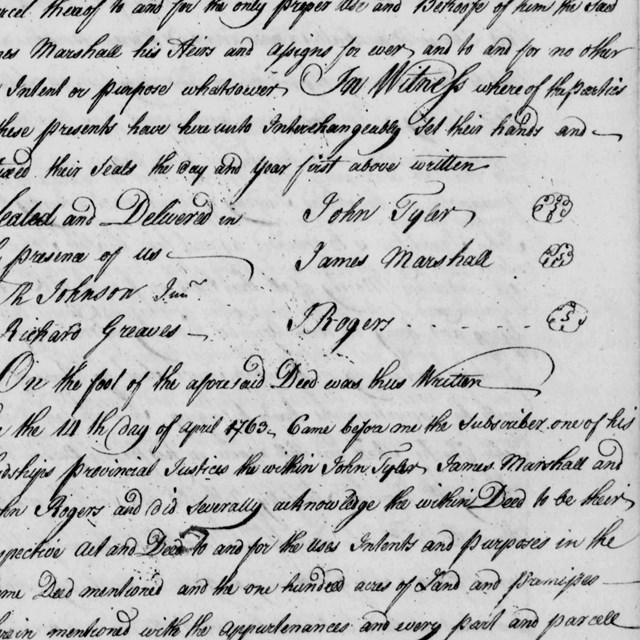 rcel thereof to and for the only proper use and Behoofe of him the Said
mes Marshall his Heirs and assigns for ever and to and for no other
Intent or purpose whatsoever In Witness whereof the parties
these presents have hereunto Interchangeably Set their hands and
ixed their Seals the Day and year first above written
Sealed and Delivered in John Tyler
presence of us James Marshall
Th Johnson Junr
Richard Greaves J Rogers
On the foot of the aforesaid Deed was thus Written
the 14th day of april 1763 Came before me the Subscriber one of his
rdships Provincial Justices the within John Tyler James Marshall and
hn Rogers and did Severally acknowledge the within Deed to be their
spective Act and Deed to and for the uses Intents and purposes in the
me Deed mentioned and the one hundred acres of Land and premises
rein mentioned with the appurtenances and every part and parcell